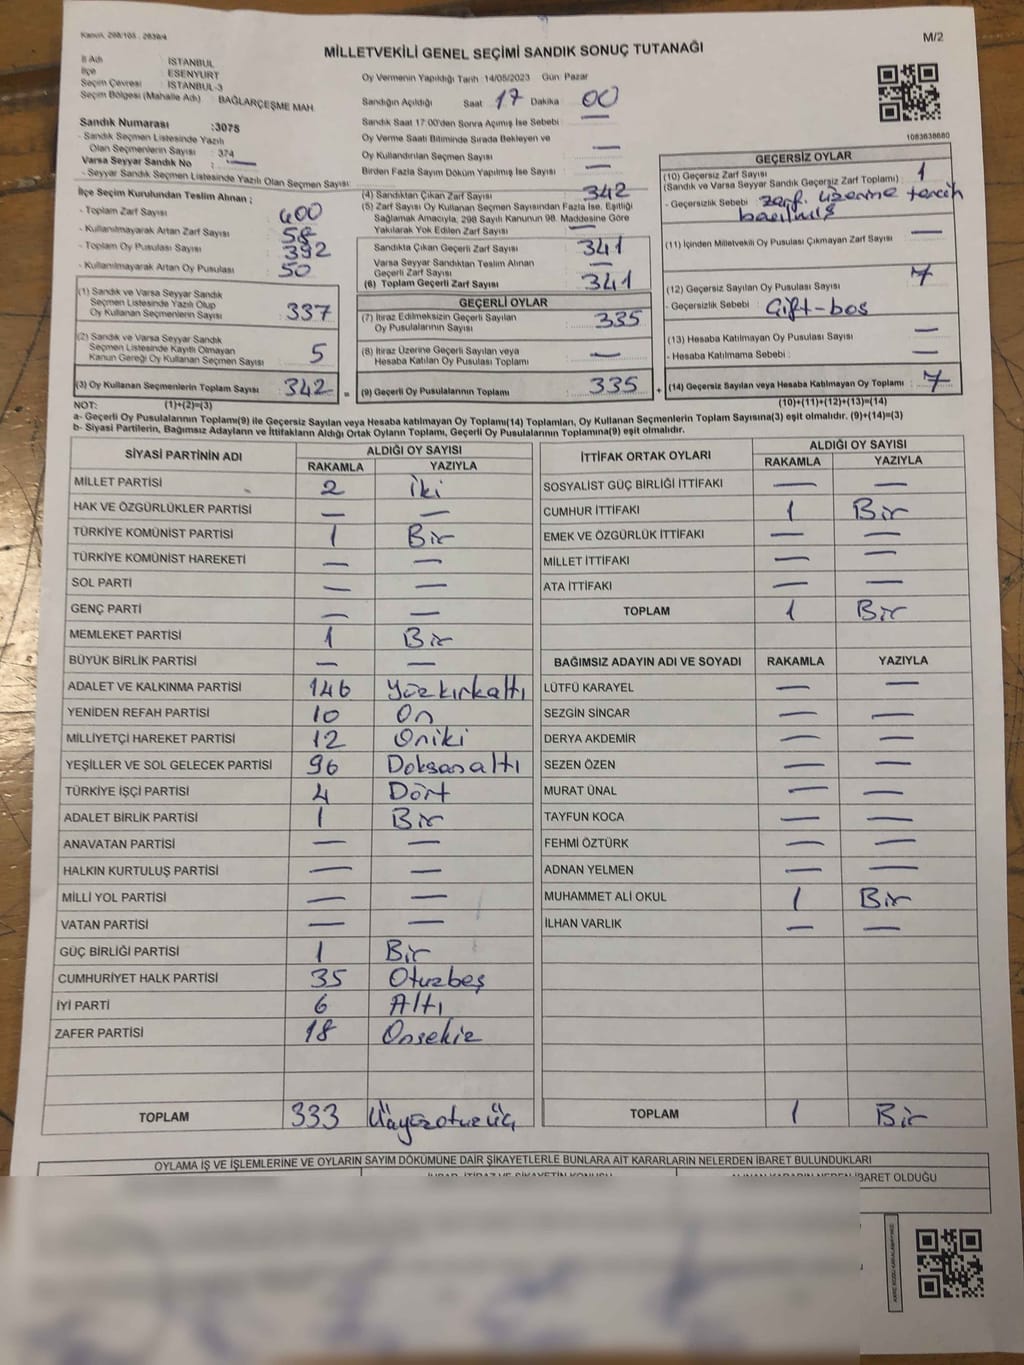 Kanun, 298/105 - 2839/4
M/2
MİLLETVEKİLİ GENEL SEÇİMİ SANDIK SONUÇ TUTANAĞI
İl Adı : İSTANBUL
İlçe : ESENYURT
Seçim Çevresi : İSTANBUL-3
Seçim Bölgesi (Mahalle Adı) : BAĞLARÇEŞME MAH.
Oy Vermenin Yapıldığı Tarih :14/05/2023 Gün: Pazar
Sandığın Açıldığı Saat 17 Dakika 00
Sandık Numarası :3075
- Sandık Seçmen Listesinde Yazılı
Olan Seçmenlerin Sayısı : 374
Varsa Seyyar Sandık No : —
- Seyyar Sandık Seçmen Listesinde Yazılı Olan Seçmen Sayısı:
Sandık Saat 17:00'den Sonra Açılmış İse Sebebi : —
Oy Verme Saati Bitiminde Sırada Bekleyen ve
Oy Kullandırılan Seçmen Sayısı —
Birden Fazla Sayım Döküm Yapılmış İse Sayısı —
1083638680
İlçe Seçim Kurulundan Teslim Alınan ;
- Toplam Zarf Sayısı : 400
- Kullanılmayarak Artan Zarf Sayısı : 58
- Toplam Oy Pusulası Sayısı : 392
- Kullanılmayarak Artan Oy Pusulası : 50
(1) Sandık ve Varsa Seyyar Sandık
Seçmen Listesinde Yazılı Olup
Oy Kullanan Seçmenlerin Sayısı : 337
(2) Sandık ve Varsa Seyyar Sandık
Seçmen Listesinde Kayıtlı Olmayan
Kanun Gereği Oy Kullanan Seçmen Sayısı : 5
(3) Oy Kullanan Seçmenlerin Toplam Sayısı : 342 =
(4) Sandıktan Çıkan Zarf Sayısı : 342
(5) Zarf Sayısı Oy Kullanan Seçmen Sayısından Fazla İse, Eşitliği
Sağlamak Amacıyla, 298 Sayılı Kanunun 98. Maddesine Göre
Yakılarak Yok Edilen Zarf Sayısı : —
Sandıkta Çıkan Geçerli Zarf Sayısı : 341
Varsa Seyyar Sandıktan Teslim Alınan
Geçerli Zarf Sayısı : —
(6) Toplam Geçerli Zarf Sayısı : 341
GEÇERLİ OYLAR
(7) İtiraz Edilmeksizin Geçerli Sayılan
Oy Pusulalarının Sayısı : 335
(8) İtiraz Üzerine Geçerli Sayılan veya
Hesaba Katılan Oy Pusulası Toplamı : —
(9) Geçerli Oy Pusulalarının Toplamı : 335 +
GEÇERSİZ OYLAR
(10) Geçersiz Zarf Sayısı : 1
(Sandık ve Varsa Seyyar Sandık Geçersiz Zarf Toplamı)
- Geçersizlik Sebebi : zarf üzerine tercih
basılmış
(11) İçinden Milletvekili Oy Pusulası Çıkmayan Zarf Sayısı —
(12) Geçersiz Sayılan Oy Pusulası Sayısı : 7
- Geçersizlik Sebebi : Çift-boş
(13) Hesaba Katılmayan Oy Sayısı : —
- Hesaba Katılmama Sebebi : —
(14) Geçersiz Sayılan veya Hesaba Katılmayan Oy Toplamı : 7
NOT: (1)+(2)=(3)
(10)+(11)+(12)+(13)=(14)
a- Geçerli Oy Pusulalarının Toplamı(9) ile Geçersiz Sayılan veya Hesaba katılmayan Oy Toplamı(14) Toplamları, Oy Kullanan Seçmenlerin Toplam Sayısına(3) eşit olmalıdır. (9)+(14)=(3)
b- Siyasi Partilerin, Bağımsız Adayların ve İttifakların Aldığı Ortak Oyların Toplamı, Geçerli Oy Pusulalarının Toplamına(9) eşit olmalıdır.
SİYASİ PARTİNİN ADI ALDIĞI OY SAYISI
RAKAMLA YAZIYLA
MİLLET PARTİSİ 2 İki
HAK VE ÖZGÜRLÜKLER PARTİSİ — —
TÜRKİYE KOMÜNİST PARTİSİ 1 Bir
TÜRKİYE KOMÜNİST HAREKETİ — —
SOL PARTİ — —
GENÇ PARTİ — —
MEMLEKET PARTİSİ 1 Bir
BÜYÜK BİRLİK PARTİSİ — —
ADALET VE KALKINMA PARTİSİ 146 Yüzkırkaltı
YENİDEN REFAH PARTİSİ 10 On
MİLLİYETÇİ HAREKET PARTİSİ 12 Oniki
YEŞİLLER VE SOL GELECEK PARTİSİ 96 Doksanaltı
TÜRKİYE İŞÇİ PARTİSİ 4 Dört
ADALET BİRLİK PARTİSİ 1 Bir
ANAVATAN PARTİSİ — —
HALKIN KURTULUŞ PARTİSİ — —
MİLLİ YOL PARTİSİ — —
VATAN PARTİSİ — —
GÜÇ BİRLİĞİ PARTİSİ 1 Bir
CUMHURİYET HALK PARTİSİ 35 Otuzbeş
İYİ PARTİ 6 Altı
ZAFER PARTİSİ 18 Onsekiz
TOPLAM 333 Üçyüzotuzüç
İTTİFAK ORTAK OYLARI ALDIĞI OY SAYISI
RAKAMLA YAZIYLA
SOSYALİST GÜÇ BİRLİĞİ İTTİFAKI — —
CUMHUR İTTİFAKI 1 Bir
EMEK VE ÖZGÜRLÜK İTTİFAKI — —
MİLLET İTTİFAKI — —
ATA İTTİFAKI — —
TOPLAM 1 Bir
BAĞIMSIZ ADAYIN ADI VE SOYADI RAKAMLA YAZIYLA
LÜTFÜ KARAYEL — —
SEZGİN SİNCAR — —
DERYA AKDEMİR — —
SEZEN ÖZEN — —
MURAT ÜNAL — —
TAYFUN KOCA — —
FEHMİ ÖZTÜRK — —
ADNAN YELMEN — —
MUHAMMET ALİ OKUL 1 Bir
İLHAN VARLIK — —
TOPLAM 1 Bir
OYLAMA İŞ VE İŞLEMLERİNE VE OYLARIN SAYIM DÖKÜMÜNE DAİR ŞİKAYETLERLE BUNLARA AİT KARARLARIN NELERDEN İBARET BULUNDUKLARI
İBARET OLDUĞU